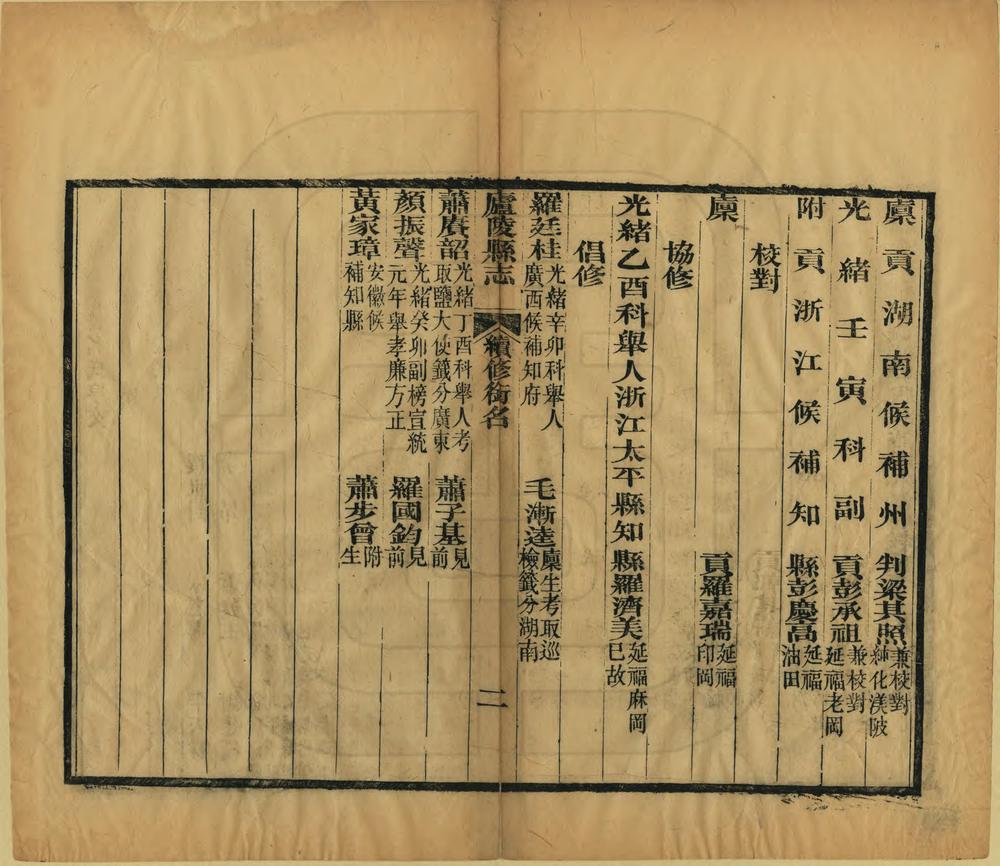 廩貢湖南候補州判梁其照兼校對純化渼陂
光緒壬寅科副貢彭承祖兼校對延福老岡
附貢浙江候補知縣彭慶高延福油田
校對
廩貢羅嘉瑞延福印岡
協修
光緒乙酉科舉人浙江太平縣知縣羅濟美延福麻岡已故
倡修
羅廷桂光緒辛卯科舉人廣西候補知府 毛漸逵廩生考取巡檢籤分湖南
廬陵縣志 續修銜名 二
蕭賡韶光緒丁酉科舉人考取鹽大使籤分廣東 蕭子基見前
顏振聲光緒癸卯副榜宣統元年舉孝廉方正 羅國鈞見前
黃家璋安徽候補知縣 蕭步曾附生